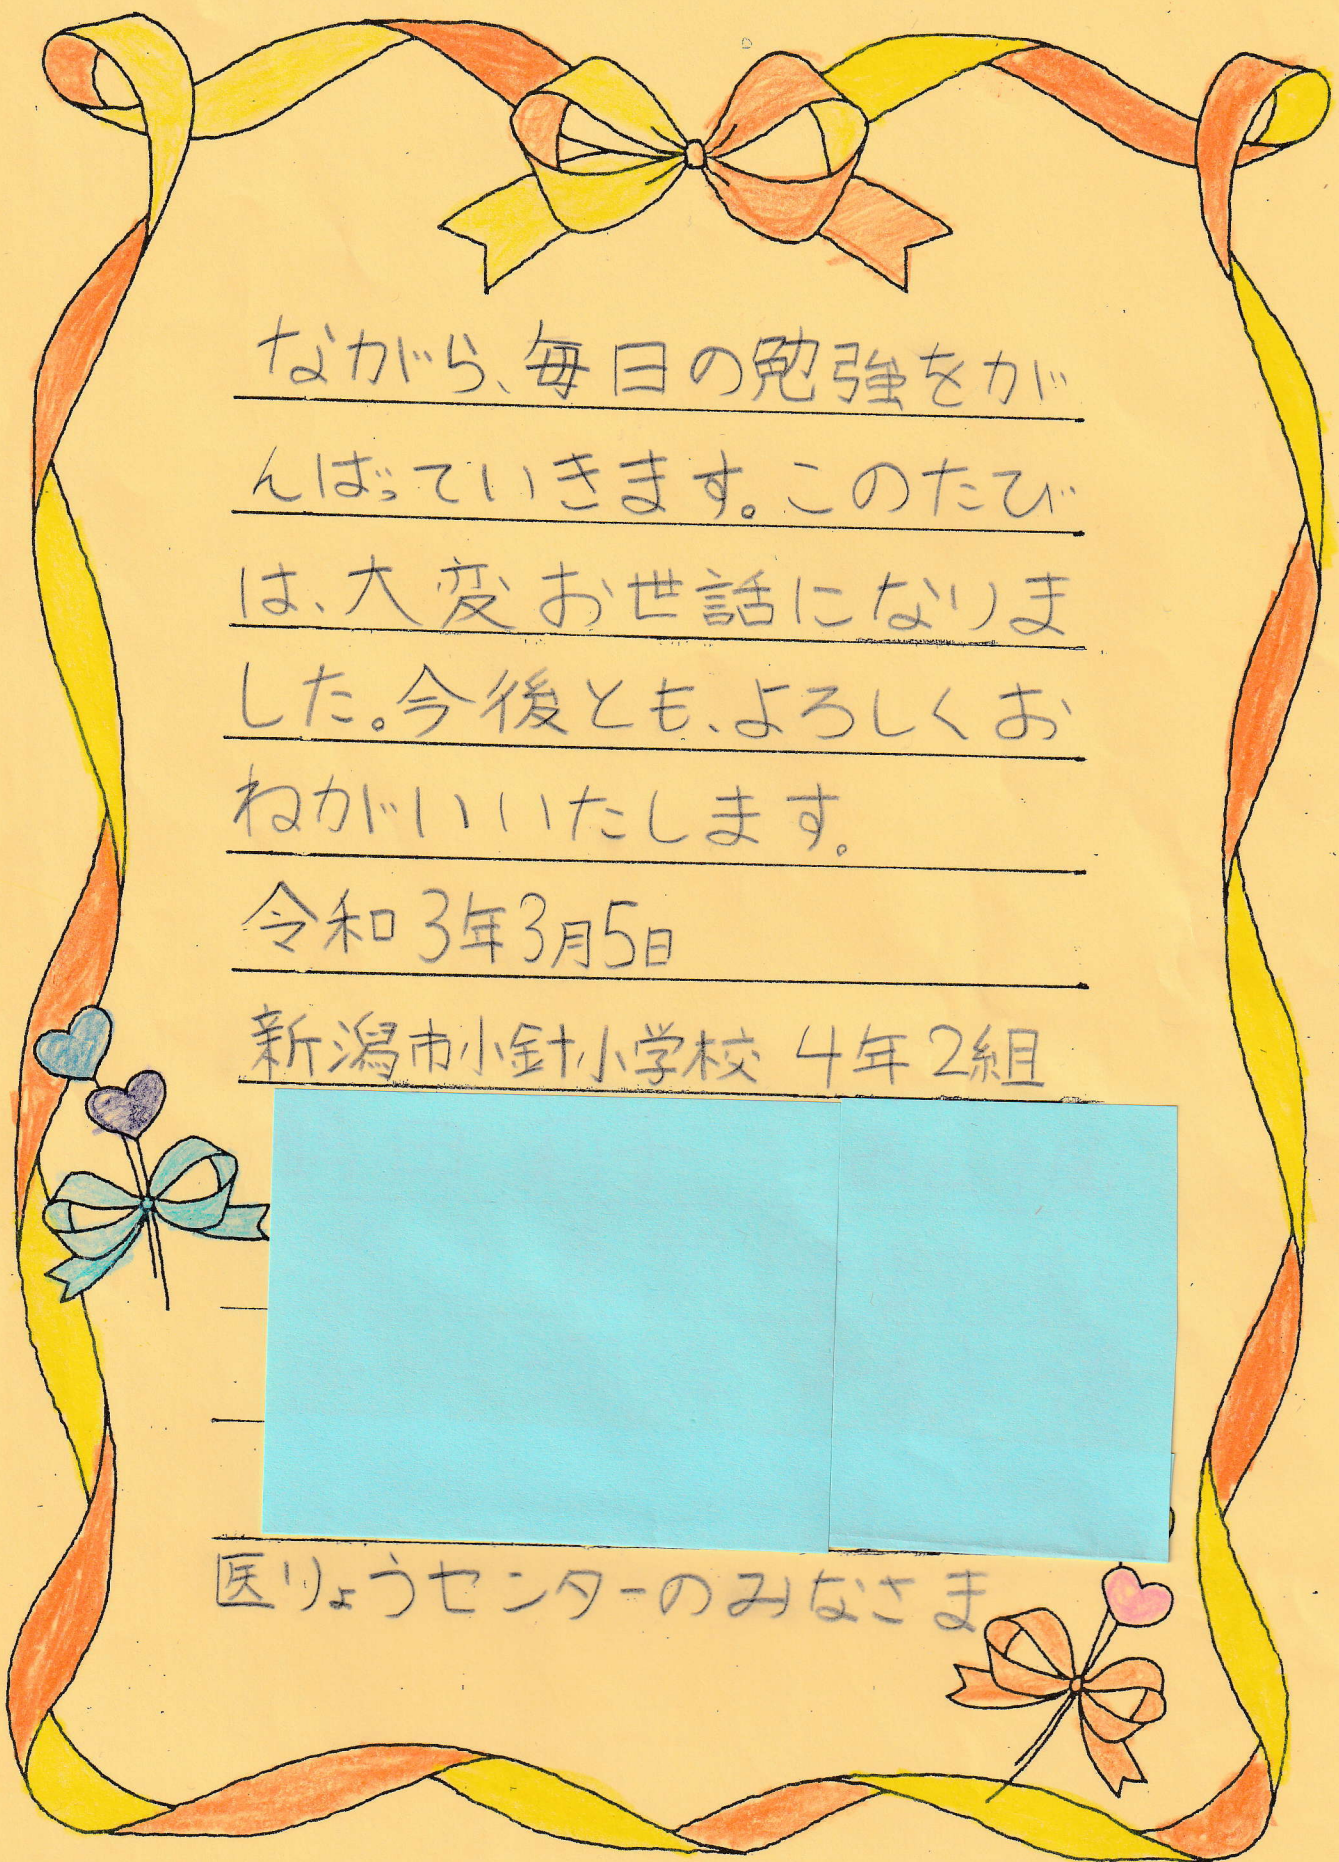 ながら、毎日の勉強をが
んばっていきます。このたび
は、大変お世話になりま
した。今後とも、よろしくお
ねがいいたします。
令和3年3月5日
新潟市小針小学校 4年2組
医りょうセンターのみなさま